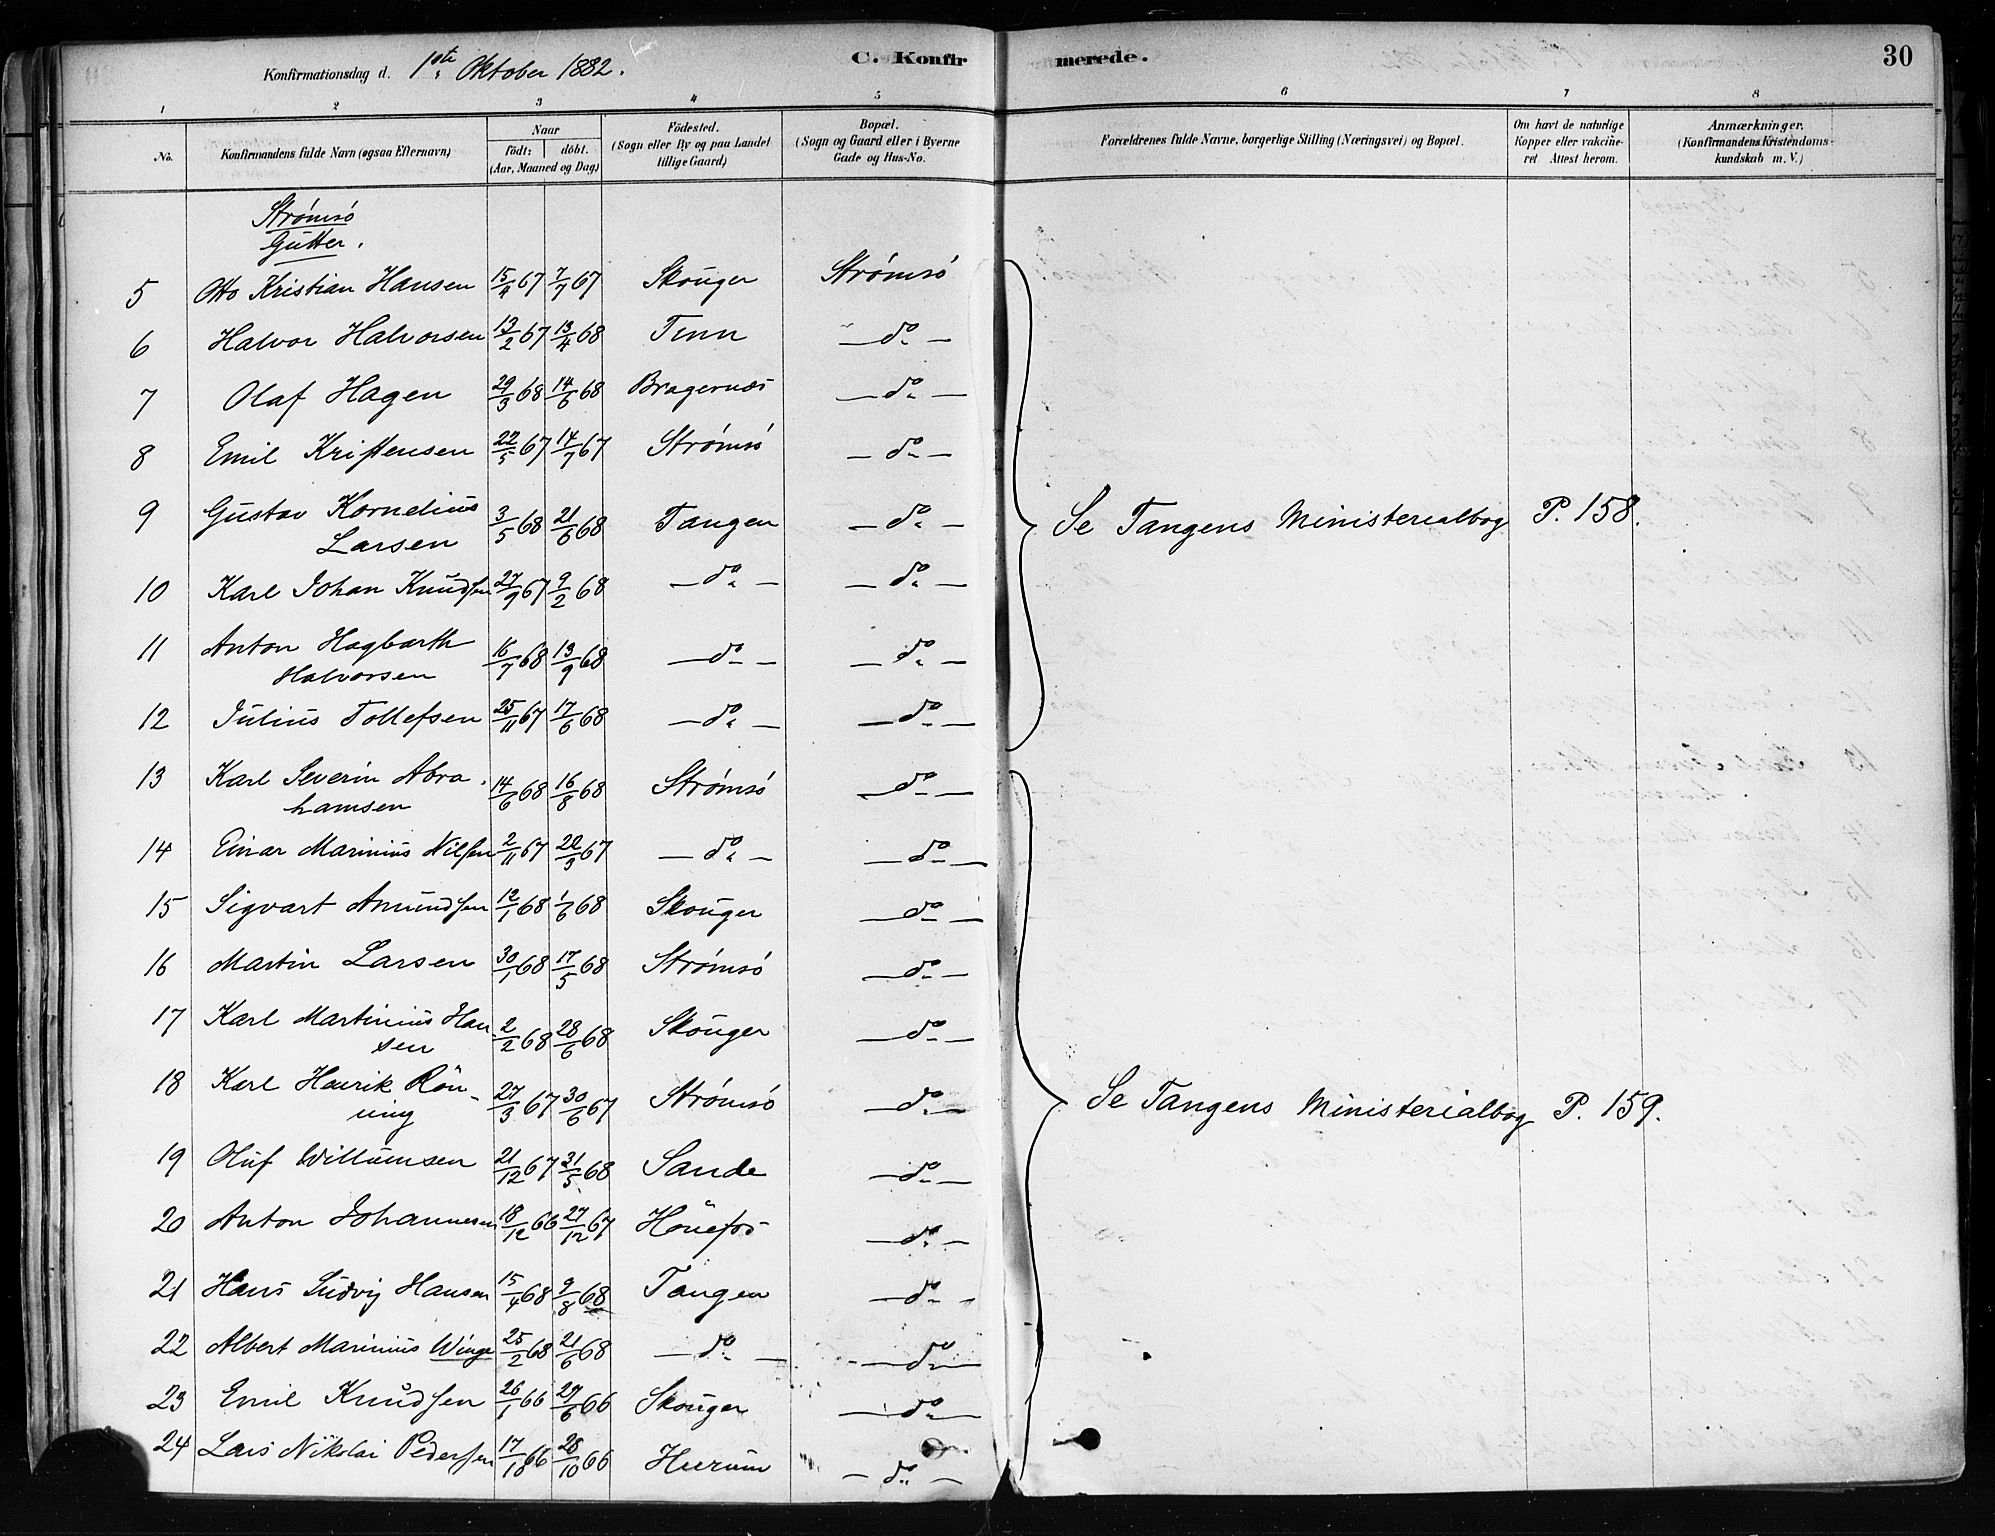 Konfirmationsdag d. 1ste Oktober 1882.
C. Konfir merede.
30
1 2 3 4 5 6 7 8
No.
Konfirmandens fulde Navn (ogsaa Efternavn)
Naar
født: døbt.
(Aar, Maaned og Dag)
Fødested.
(Sogn eller By og paa Landet
tillige Gaard)
Bopæl.
(Sogn og Gaard eller i Byerne
Gade og Hus-No.
Forældrenes fulde Navne, borgerlige Stilling (Næringsvei) og Bopæl.
Om havt de naturlige
Kopper eller vakcine-
ret. Attest herom.
Anmærkninger.
(Konfirmandens Kristendoms-
kundskab m. V.)
Strømsö
Gutter.
5 Otto Kristian Hansen 15/4 67 7/7 67 Skouger Strömsö
6 Halvor Halvorsen 13/2 67 13/4 68 Tinn — do —
7 Olaf Hagen 29/3 68 14/6 68 Bragernæs — do —
8 Emil Kristensen 22/5 67 14/7 67 Strømsö — do —
9 Gustav Kornelius
Larsen 3/5 68 21/6 68 Tangen — do —
Se Tangens Ministerialbog P. 158.
10 Karl Johan Knudsen 27/9 67 9/2 68 — do — — do —
11 Anton Hagbarth
Halvorsen 16/7 68 13/9 68 — do — — do —
12 Julius Tollefsen 25/11 67 17/6 68 — do — — do —
13 Karl Severin Abra-
hamsen 14/6 68 16/8 68 Strømsö — do —
14 Einar Marinius Nilsen 2/11 67 — do — — do —
15 Sigvart Amundsen 12/1 68 1/6 68 Skouger — do —
16 Martin Larsen 30/1 68 17/5 68 Strømsö — do —
17 Karl Martinius Han-
sen 2/2 68 28/6 68 Skouger — do —
18 Karl Henrik Rön-
ning 27/3 67 30/6 67 Strømsö — do —
Se Tangens Ministerialbog P. 159.
19 Oluf Willumsen 21/12 67 31/5 68 Sande — do —
20 Anton Johannesen 18/12 66 27/12 67 Hönefos — do —
21 Hans Ludvig Hansen 15/4 68 9/8 68 Tangen — do —
22 Albert Marinius Winge 25/2 68 21/6 68 — do — — do —
23 Emil Knudsen 26/1 66 29/6 66 Skouger — do —
24 Lars Nikolai Pedersen 17/10 66 28/10 66 Hurum — do —